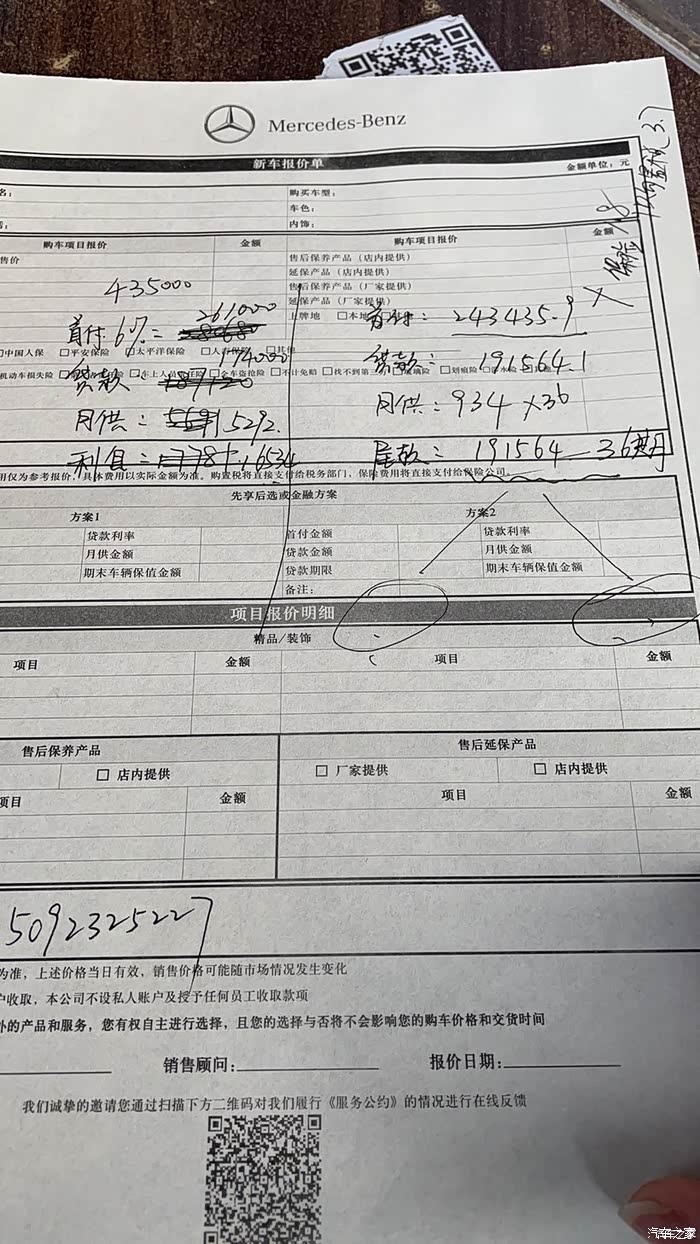 Mercedes-Benz
新车报价单
金额单位：元
名：
购买车型：
车色：
内饰：
购车项目报价
金额
购车项目报价
金额
售价
售后保养产品（店内提供）
延保产品（店内提供）
435000
售后保养产品（厂家提供）
延保产品（厂家提供）
261000
上牌地 □本地
首付6%=
280680
243435.9
□中国人保 □平安保险 □太平洋保险
□其他
174000
贷款：191564.1
机动车损失险
车上人员 全车盗抢险 □不计免赔 □找不到第 划痕险
贷款：
187120
月供：5691 5292.
月供：934×36
利息：17785 16534
尾款：191564—36
用仅为参考报价，具体费用以实际金额为准。购置税将直接支付给税务部门，保险费用将直接支付给保险公司。
先享后选或金融方案
方案1
方案2
贷款利率
首付金额
贷款利率
月供金额
贷款金额
月供金额
期末车辆保值金额
贷款期限
期末车辆保值金额
备注：
项目报价明细
精品/装饰
项目
金额
项目
金额
售后保养产品
售后延保产品
□ 店内提供
□ 厂家提供
□ 店内提供
项目
金额
项目
金额
5092325227
为准，上述价格当日有效，销售价格可能随市场情况发生变化
户收取，本公司不设私人账户及授予任何员工收取款项
外的产品和服务，您有权自主进行选择，且您的选择与否将不会影响您的购车价格和交货时间
销售顾问：
报价日期：
我们诚挚的邀请您通过扫描下方二维码对我们履行《服务公约》的情况进行在线反馈
汽车之家